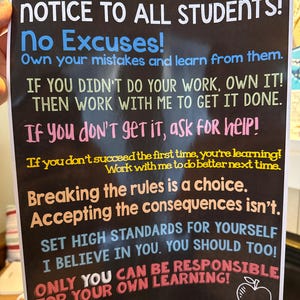 NOTICE TO ALL STUDENTS!
No Excuses!
Own your mistakes and learn from them.
IF YOU DIDN'T DO YOUR WORK, OWN IT!
THEN WORK WITH ME TO GET IT DONE.
If you don't get it, ask for help!
If you don't succeed the first time, you're learning!
Work with me to do better next time.
Breaking the rules is a choice.
Accepting the consequences isn't.
SET HIGH STANDARDS FOR YOURSELF
I BELIEVE IN YOU, YOU SHOULD TOO!
ONLY YOU CAN BE RESPONSIBLE
FOR YOUR OWN LEARNING!